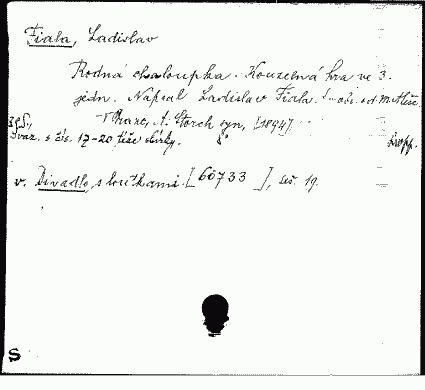 Fiala, Ladislav
Rodná chaloupka. Kouzelná hra ve 3.
jedn. Napsal Ladislav Fiala.
V Praze, A. Storch syn, [1894]
Svaz. s čís. 17-20 téže sbírky. 8°
v. Divadlo s loutkami. [60733], seš. 19.
S